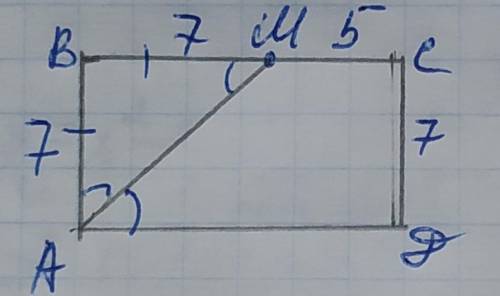 B 7 M 5 C
7 7
A D